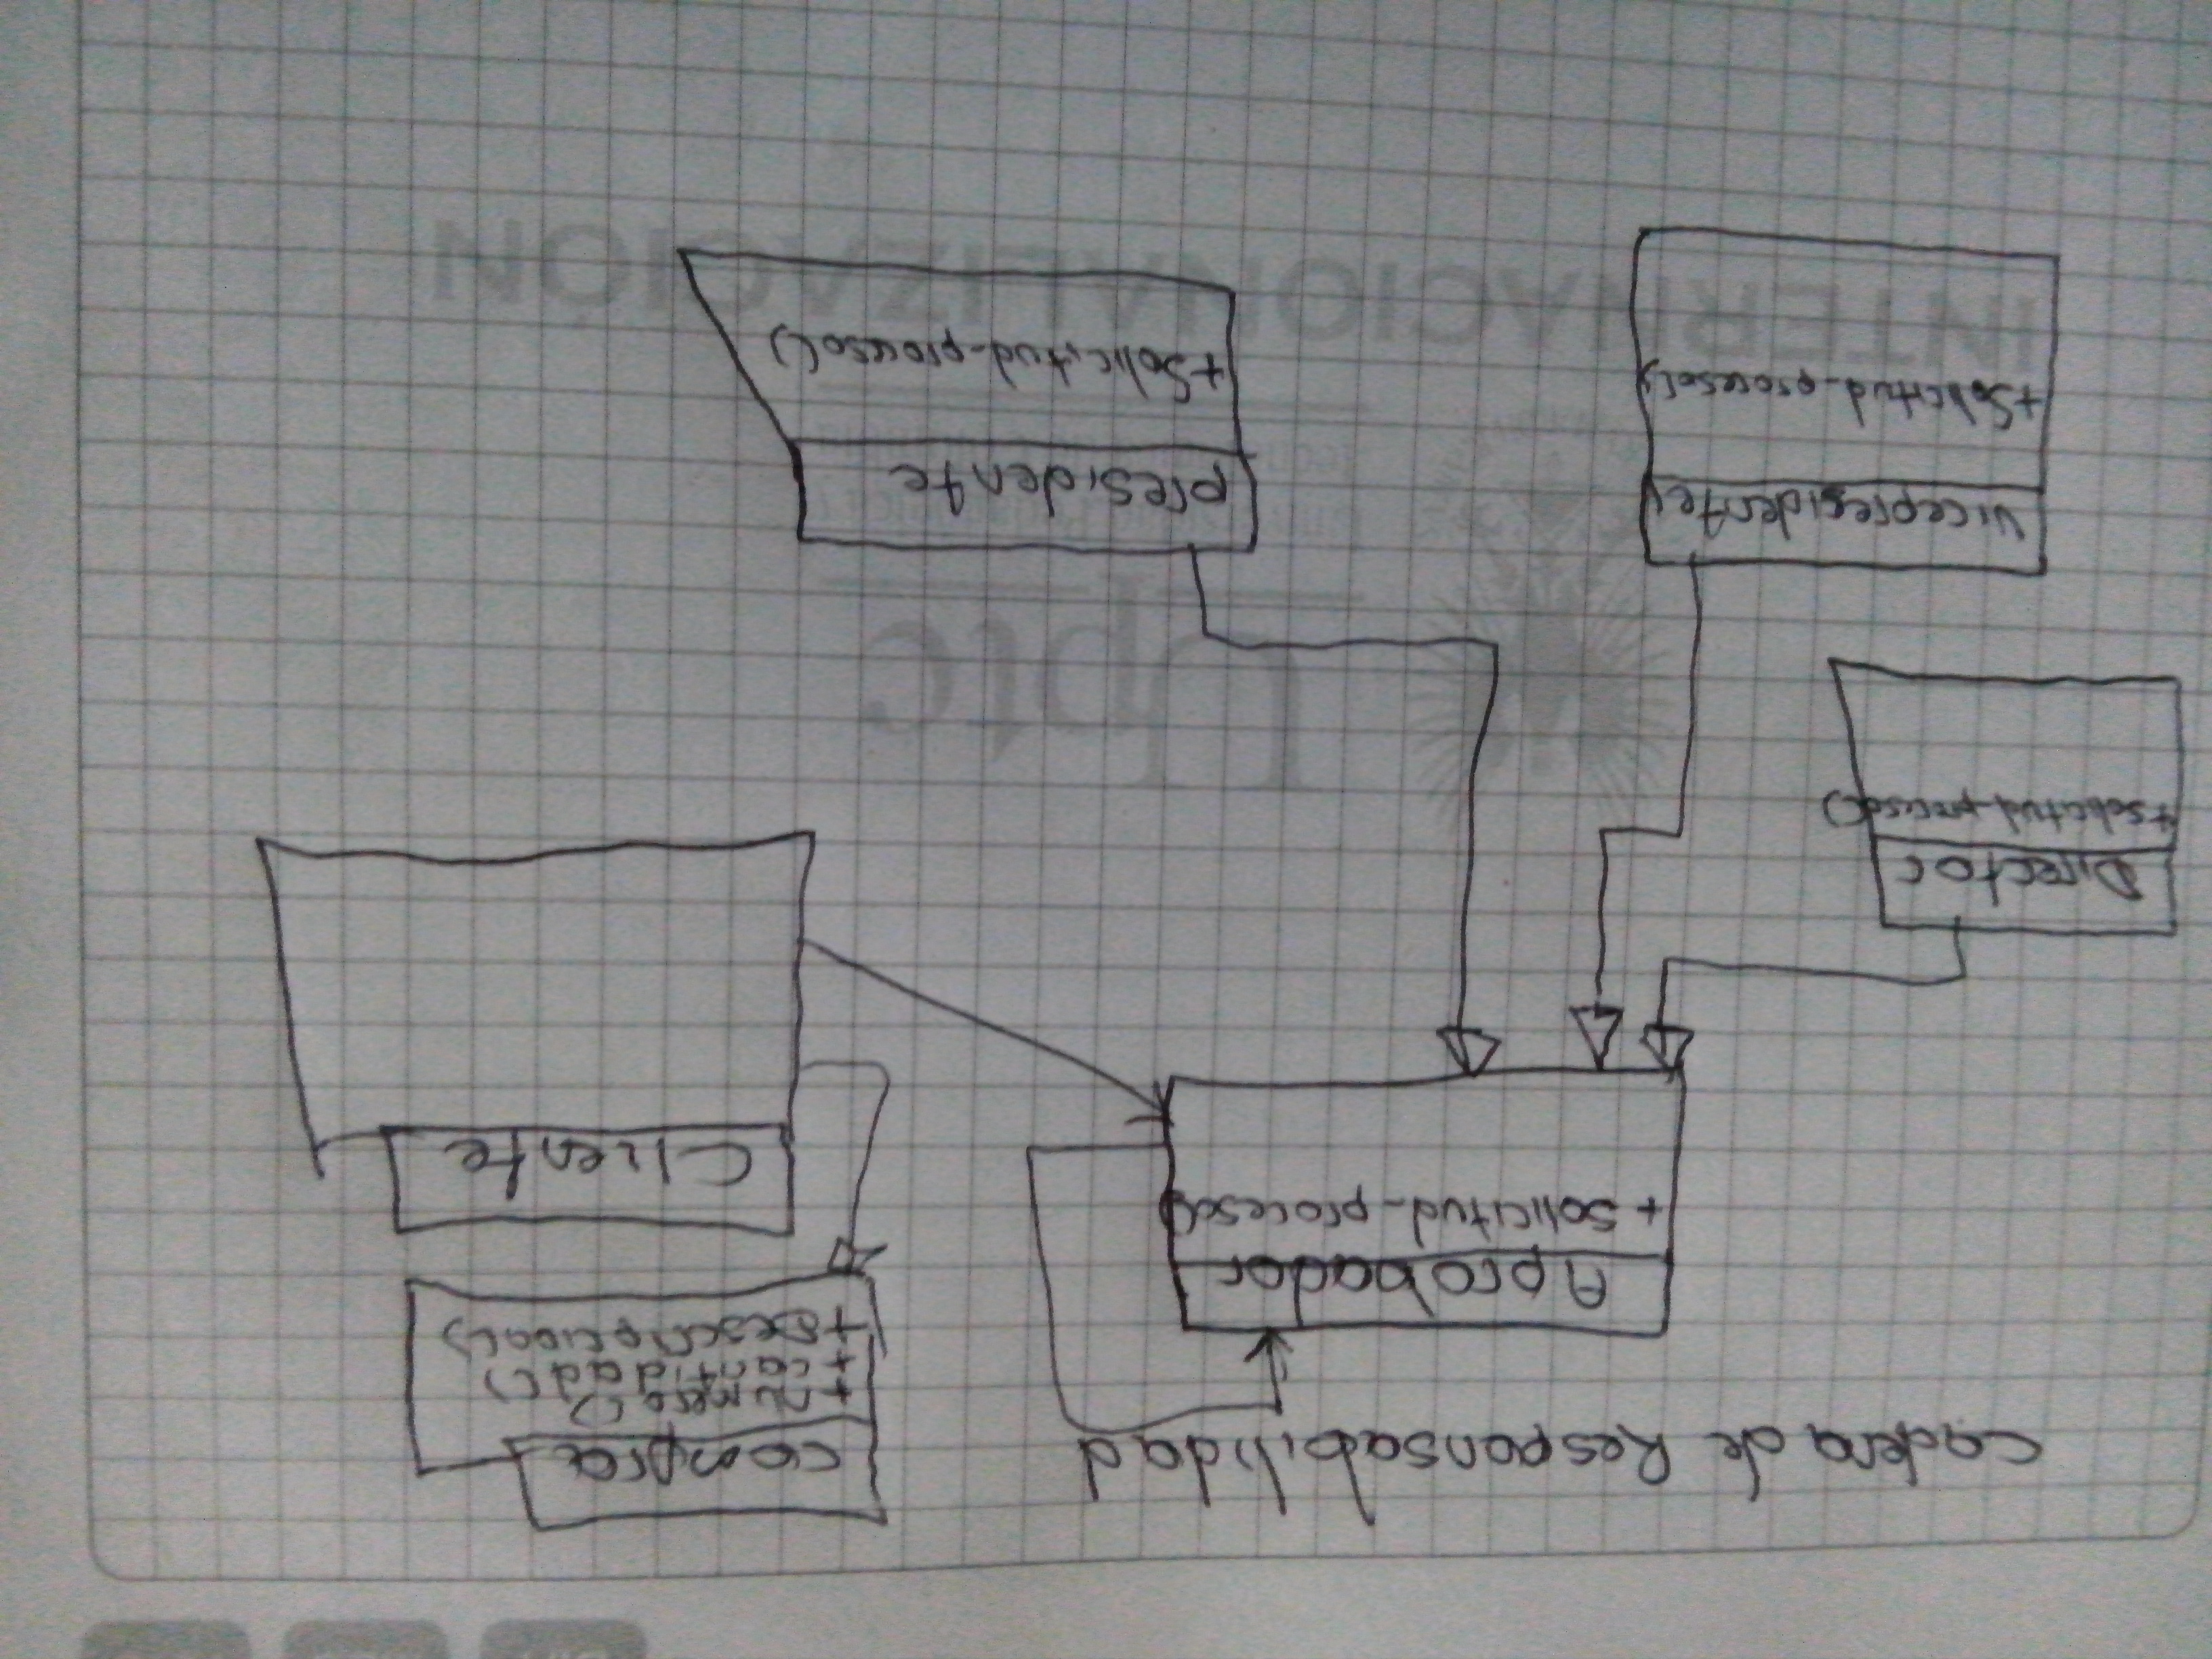 Cadena de Responsabilidad
compra
+ numero()
+ cantidad()
+ Descripcion()
Aprobador
+ Solicitud_proceso()
Cliente
Director
+solicitud_proceso()
Uptc
Vicepresidente
+Solicitud_proceso()
presidente
+Solicitud_proceso()
INTERNACIONALIZACIÓN